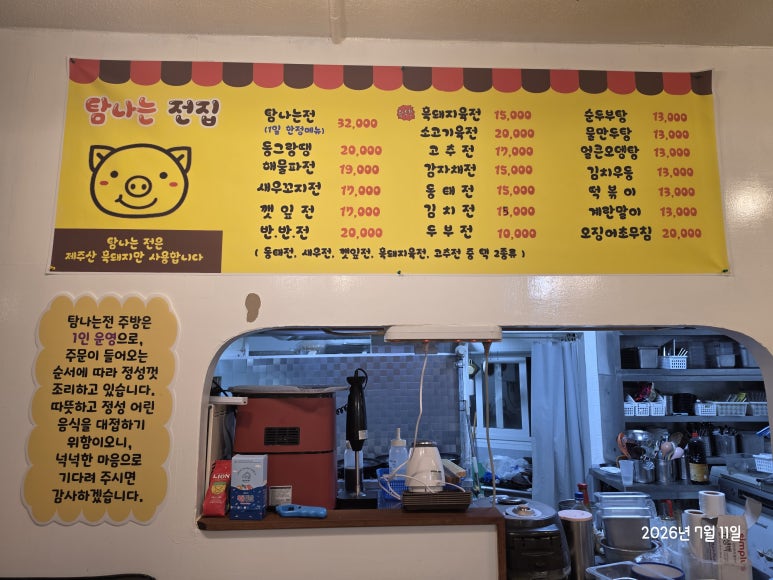 탐나는 전집
탐나는 전은
제주산 흑돼지만 사용합니다
탐나는전 32,000
(1일 한정메뉴)
동그랑땡 20,000
해물파전 19,000
새우꼬지전 17,000
깻잎전 17,000
반.반.전 20,000
( 동태전, 새우전, 깻잎전, 흑돼지육전, 고추전 중 택 2종류 )
흑돼지육전 15,000
소고기육전 20,000
고추전 17,000
감자채전 15,000
동태전 15,000
김치전 15,000
두부전 10,000
순두부탕 13,000
물만두탕 13,000
얼큰오뎅탕 13,000
김치우동 13,000
떡볶이 13,000
계란말이 13,000
오징어초무침 20,000
탐나는전 주방은
1인 운영으로,
주문이 들어오는
순서에 따라 정성껏
조리하고 있습니다.
따뜻하고 정성 어린
음식을 대접하기
위함이오니,
넉넉한 마음으로
기다려 주시면
감사하겠습니다.
LION
simplus
2026년 7월 11일